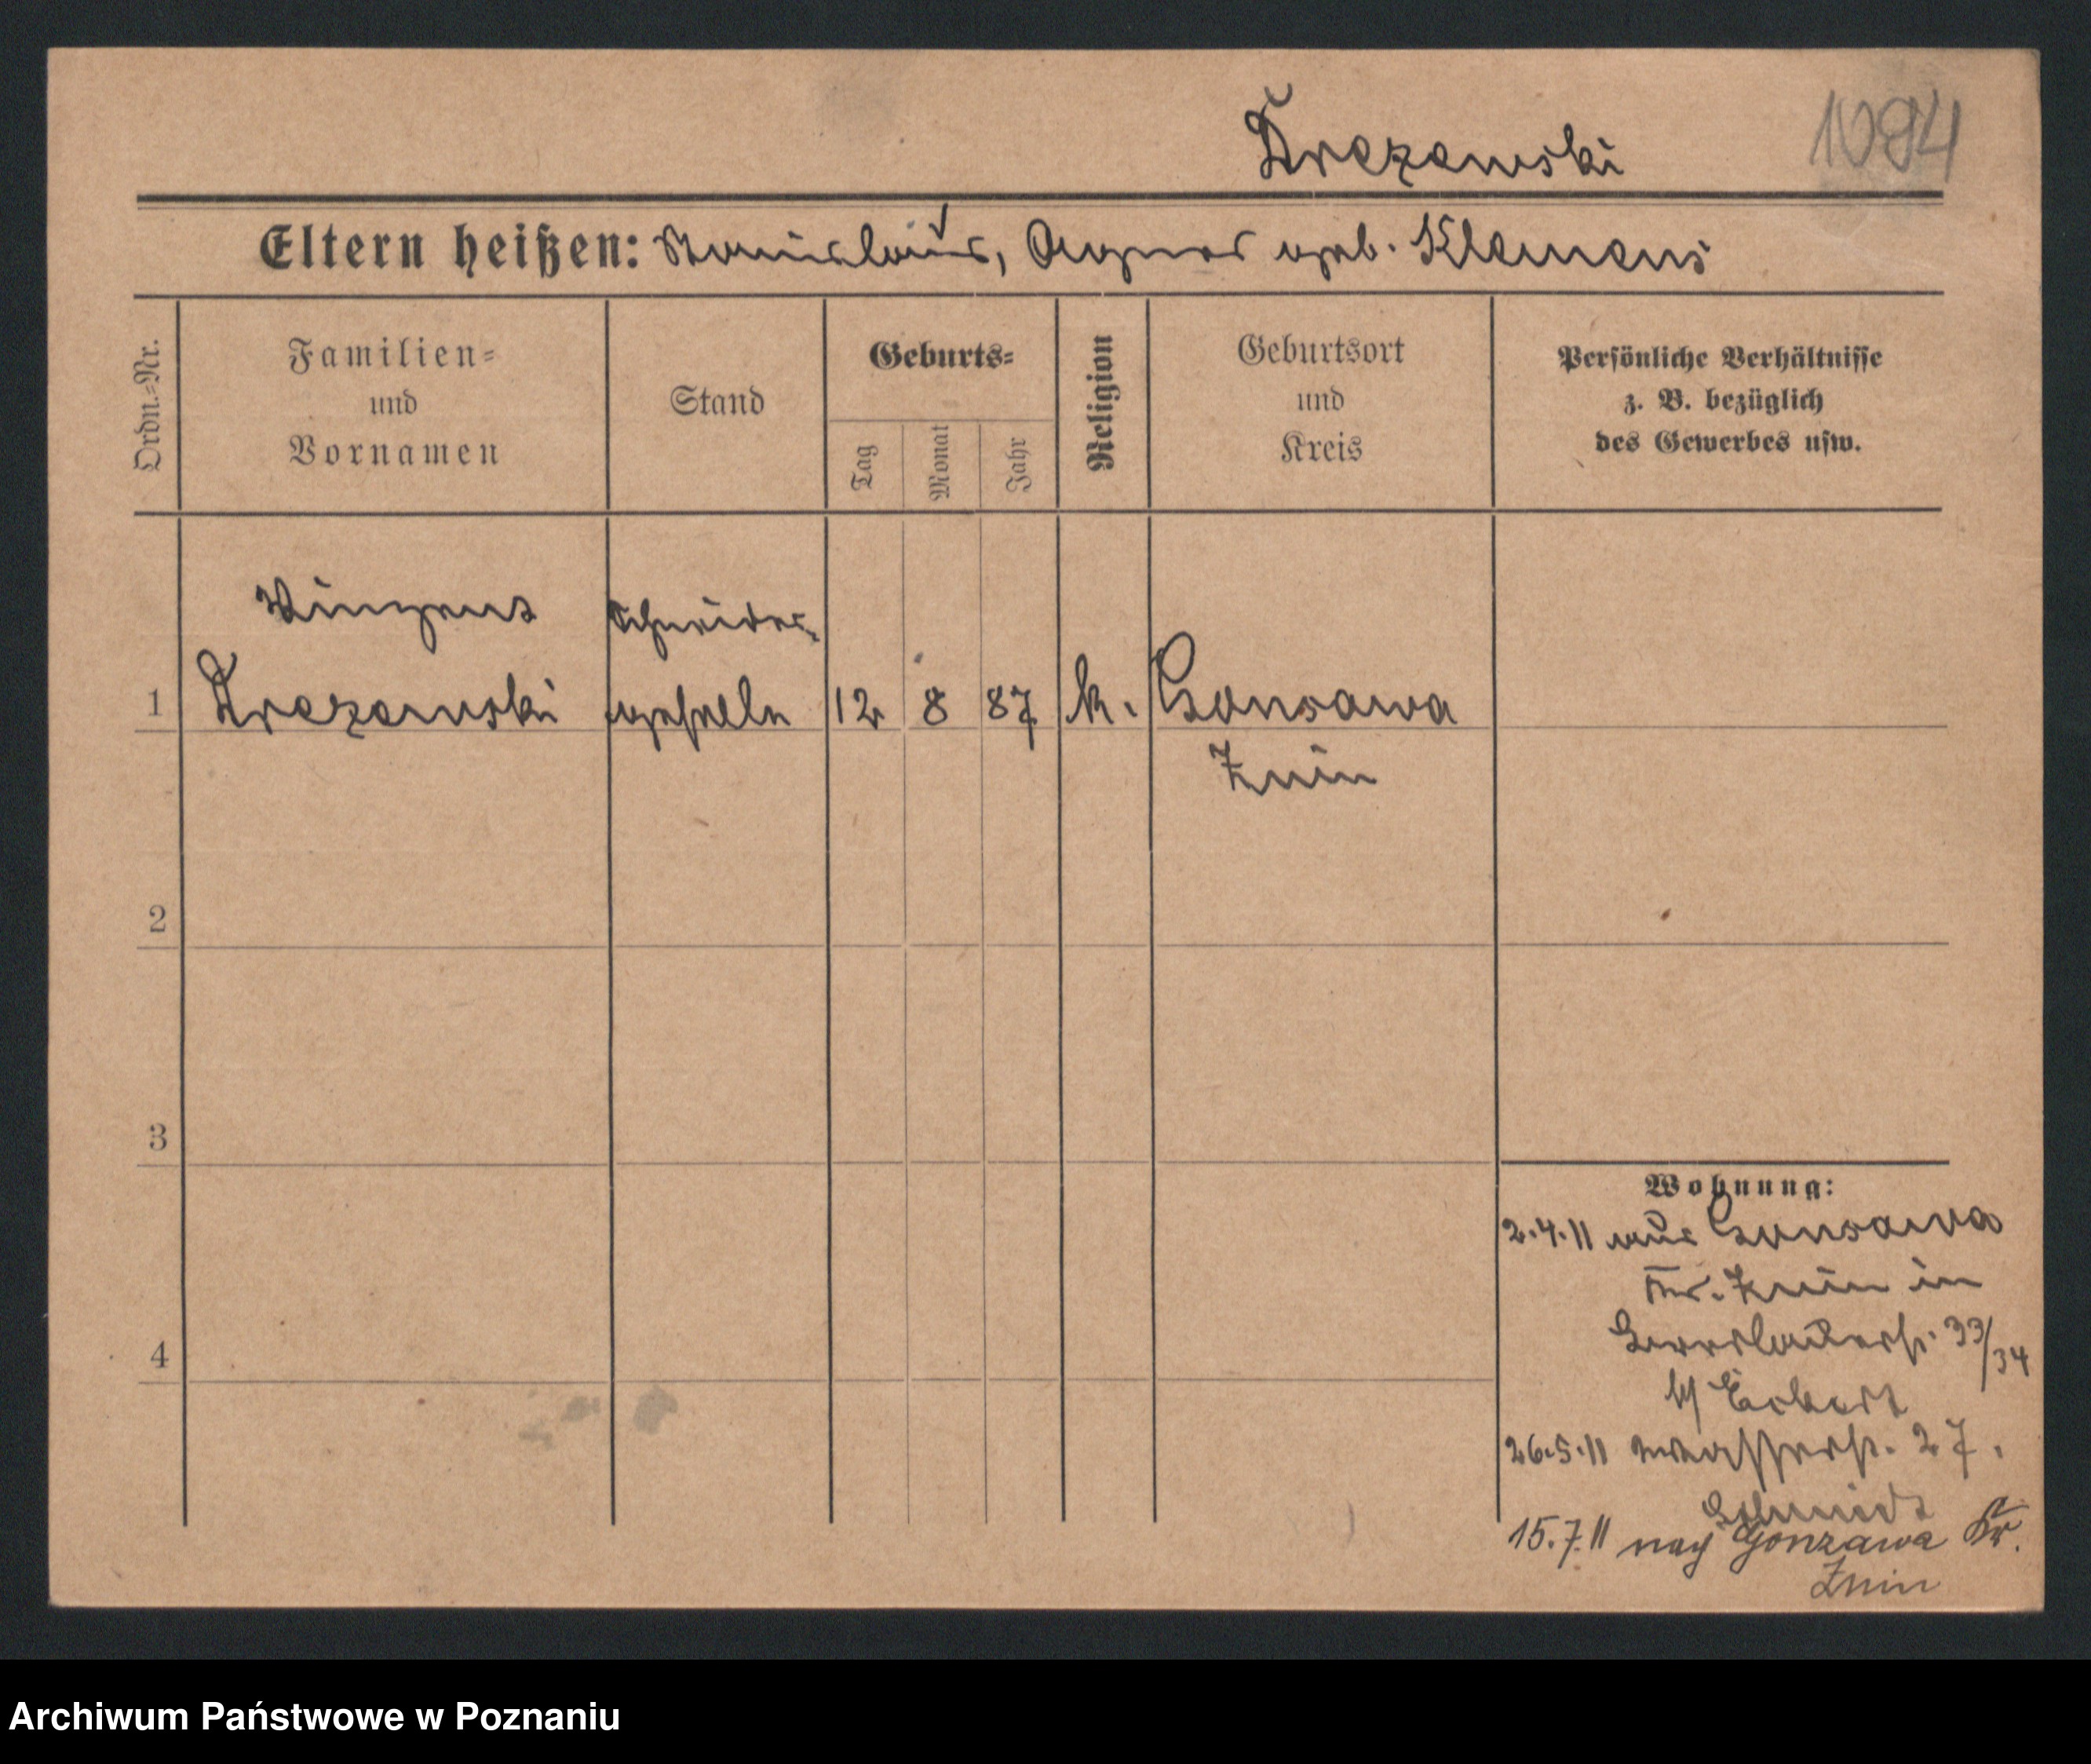 Drezewski
1094
Eltern heißen: Stanislaus, Agnes geb. Klemens
Ordn.-Nr.
Familien-
und
Vornamen
Stand
Geburts-
Tag
Monat
Jahr
Religion
Geburtsort
und
Kreis
Persönliche Verhältnisse
z. B. bezüglich
des Gewerbes usw.
Vinzent Schneider-
1 Drezewski geselle 12 8 87 k. Gonsawa
Znin
2
3
4
Wohnung:
2.4.11 aus Gonsawa
Kr. Znin in
33/34
b/ Eckert
26.5.11 Wasserstr. 27.
Schmidt
15.7.11 nach Gonzawa Kr.
Znin
Archiwum Państwowe w Poznaniu